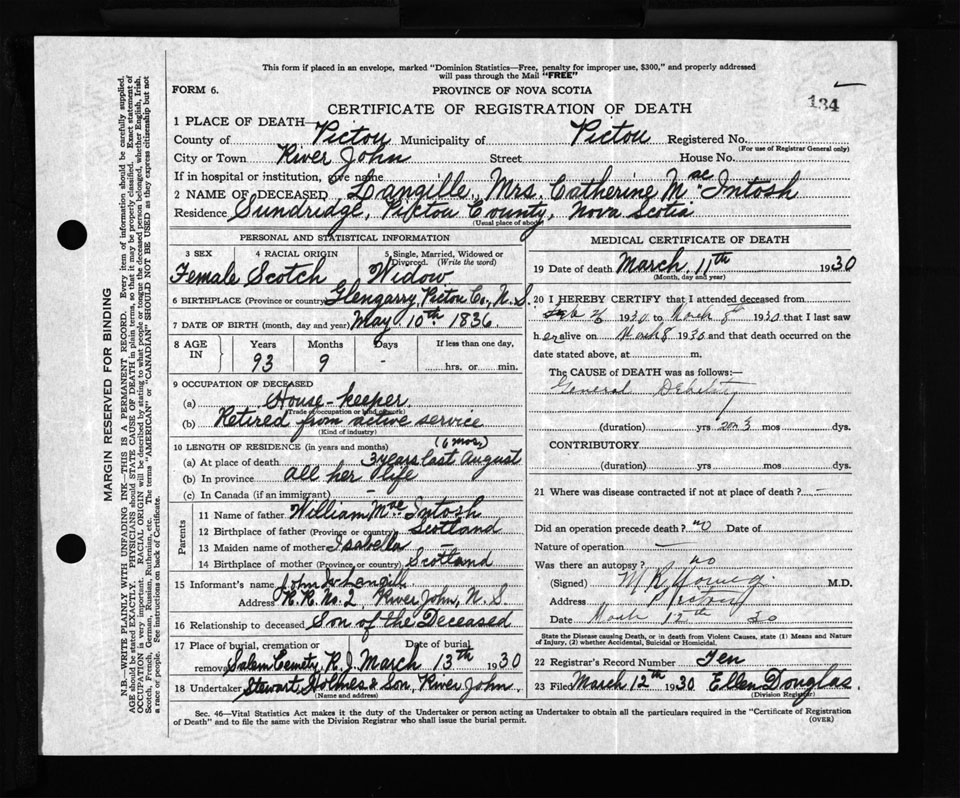 This form if placed in an envelope, marked "Dominion Statistics—Free, penalty for improper use, $300," and properly addressed
will pass through the Mail "FREE"
FORM 6.
PROVINCE OF NOVA SCOTIA
134
CERTIFICATE OF REGISTRATION OF DEATH
1 PLACE OF DEATH—
County of Pictou Municipality of Pictou Registered No.
(For use of Registrar General only)
City or Town River John Street House No.
If in hospital or institution, give name
2 NAME OF DECEASED Langille, Mrs. Catherine Mac Intosh
Residence Sundridge, Pictou County, Nova Scotia
(Usual place of abode)
PERSONAL AND STATISTICAL INFORMATION
3 SEX 4 RACIAL ORIGIN 5 Single, Married, Widowed or Divorced. (Write the word)
Female Scotch Widow
6 BIRTHPLACE (Province or country) Glengarry, Pictou Co., N.S.
7 DATE OF BIRTH (month, day and year) May 10th 1836
8 AGE IN Years Months Days If less than one day,
93 9 - hrs. or min.
9 OCCUPATION OF DECEASED
(a) House-keeper
(Trade of occupation or kind of work)
(b) Retired from active service
(Kind of industry)
10 LENGTH OF RESIDENCE (in years and months) (6 mos.)
(a) At place of death 3 years last August
(b) In province all her life
(c) In Canada (if an immigrant) -
Parents
11 Name of father William Mac Intosh
12 Birthplace of father (Province or country) Scotland
13 Maiden name of mother Isabella -
14 Birthplace of mother (Province or country) Scotland
15 Informant's name John Langille
Address R.R. No. 2, River John, N.S.
16 Relationship to deceased Son of the Deceased
17 Place of burial, cremation or removal Date of burial
Salem Cemety, R.J. March 13th 1930
18 Undertaker Stewart Holmes & Son, River John.
(Name and address)
MEDICAL CERTIFICATE OF DEATH
19 Date of death March 11th 1930
(Month, day and year)
20 I HEREBY CERTIFY that I attended deceased from
Feb 26 1930 to March 8th 1930 that I last saw
her alive on March 8 1930 and that death occurred on the
date stated above, at m.
The CAUSE of DEATH was as follows:—
General Debility
(duration) yrs 3 mos dys.
CONTRIBUTORY
(duration) yrs mos dys.
21 Where was disease contracted if not at place of death? -
Did an operation precede death? no Date of
Nature of operation —
Was there an autopsy? no
(Signed) M R Young M.D.
Address Pictou
Date March 12th 30
State the Disease causing Death, or in death from Violent Causes, state (1) Means and Nature
of Injury, (2) whether Accidental, Suicidal or Homicidal.
22 Registrar's Record Number Ten
23 Filed March 12th 1930 Ellen Douglas.
(Division Registrar)
Sec. 46—Vital Statistics Act makes it the duty of the Undertaker or person acting as Undertaker to obtain all the particulars required in the "Certificate of Registration
of Death" and to file the same with the Division Registrar who shall issue the burial permit.
(OVER)
MARGIN RESERVED FOR BINDING
N.B.—WRITE PLAINLY WITH UNFADING INK—THIS IS A PERMANENT RECORD. Every item of information should be carefully supplied.
AGE should be stated EXACTLY. PHYSICIANS should STATE CAUSE OF DEATH in plain terms, so that it may be properly classified. Exact statement of
OCCUPATION is very important. RACIAL ORIGIN will be described by stating to what people or tongue the deceased person belonged, whether English, Irish,
Scotch, French, German, Russian, Ruthenian, etc. The terms "AMERICAN" or "CANADIAN" SHOULD NOT BE USED as they express citizenship but not
a race or people. See instructions on back of Certificate.